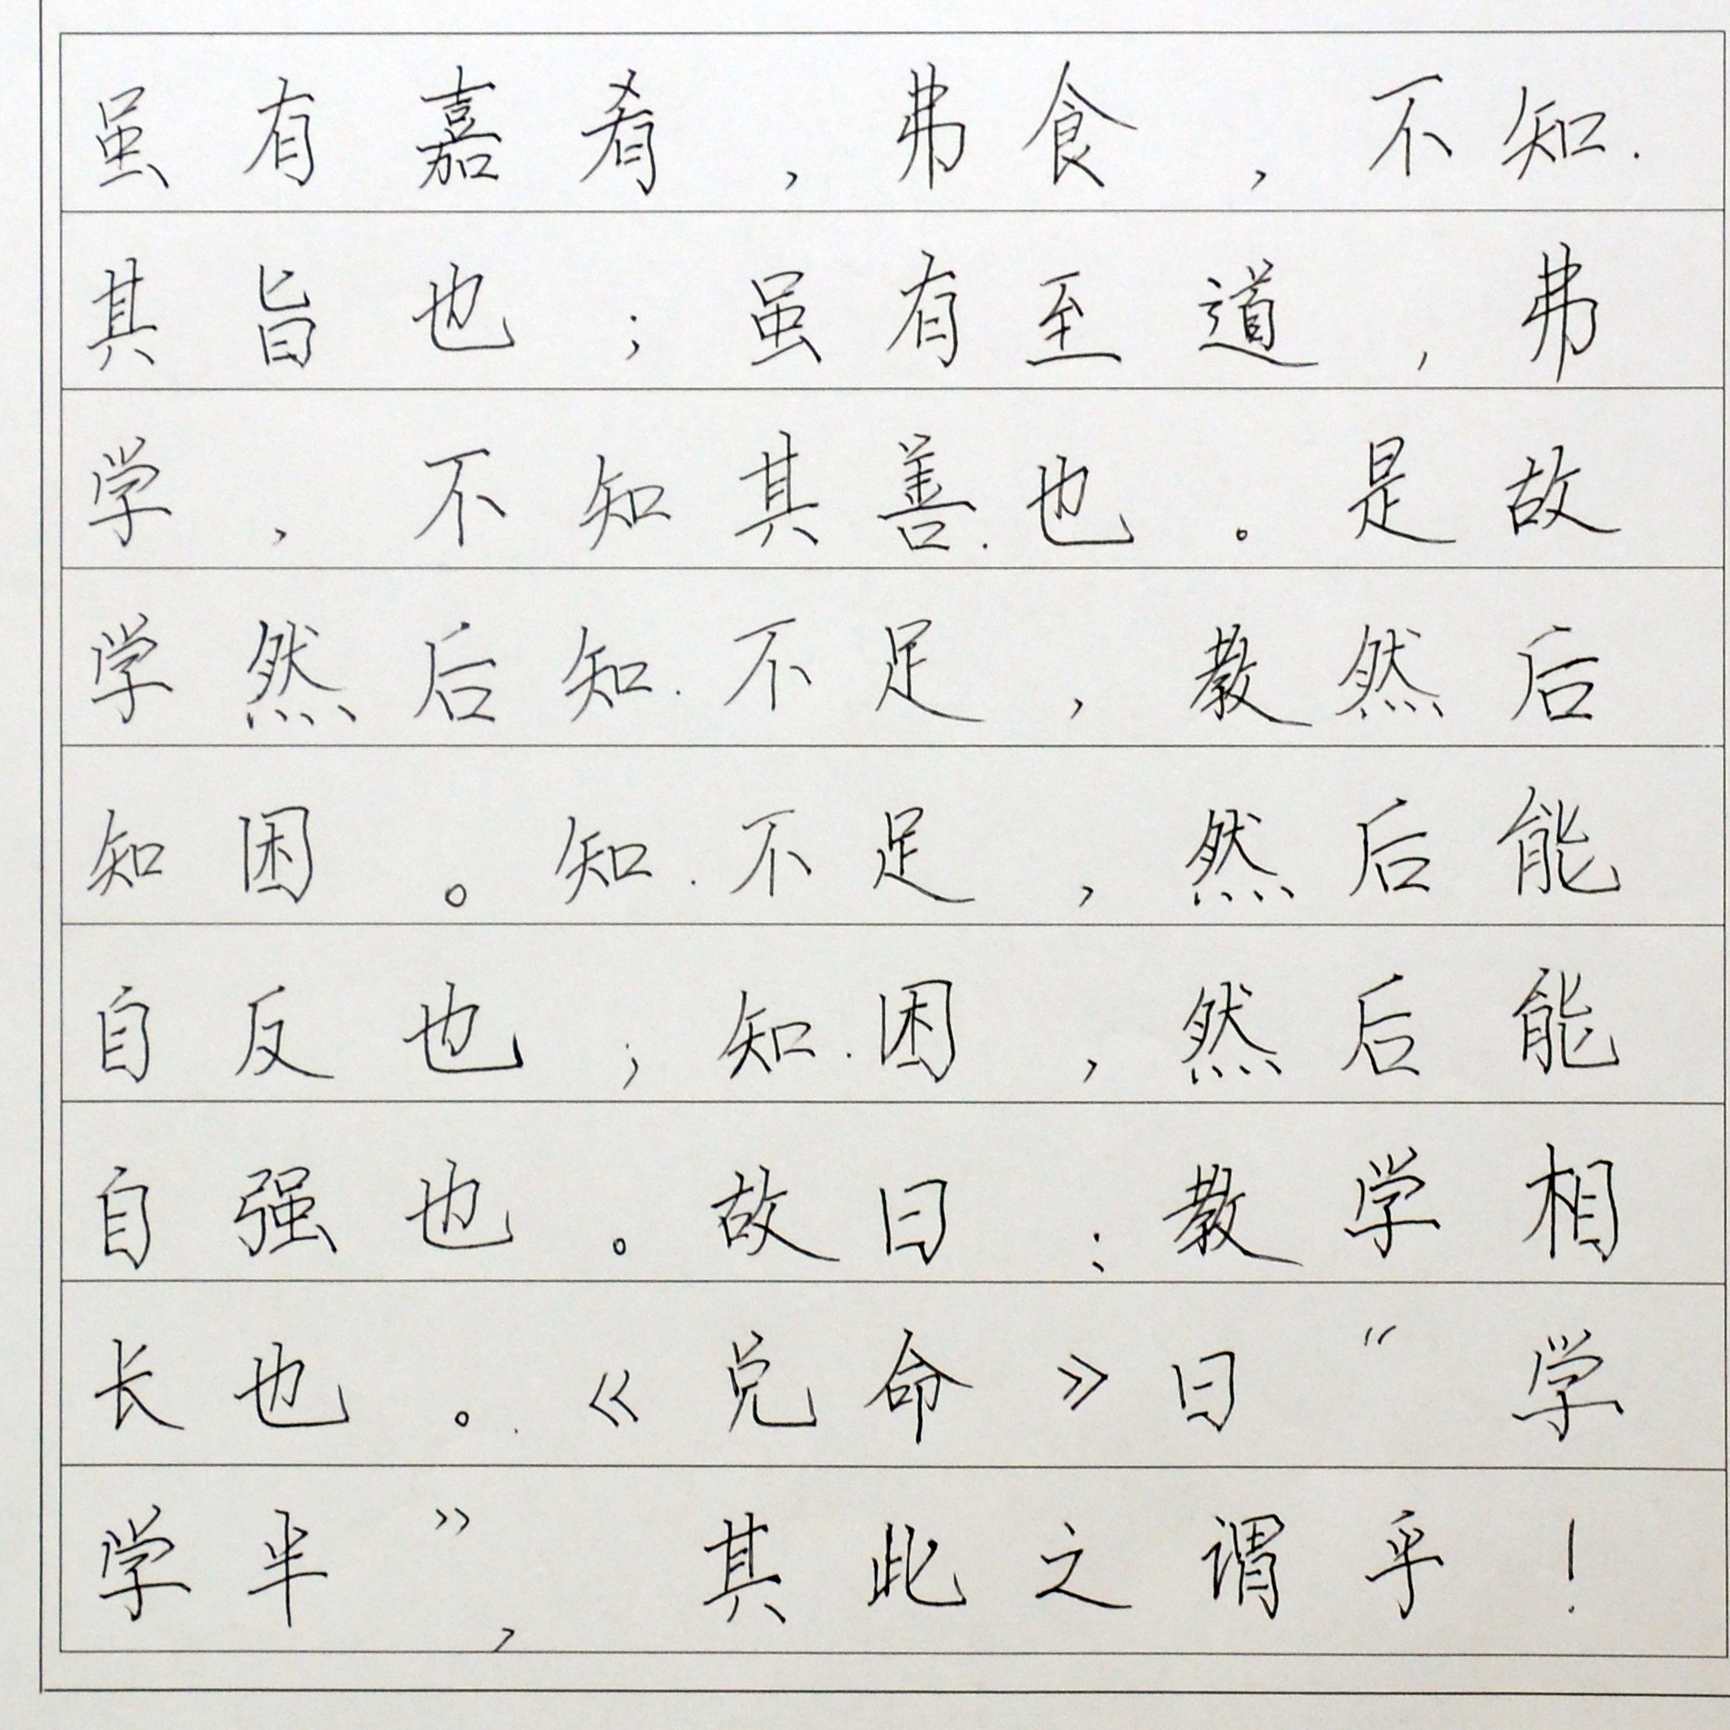 虽有嘉肴，弗食，不知
其旨也；虽有至道，弗
学，不知其善也。是故
学然后知不足，教然后
知困。知不足，然后能
自反也；知困，然后能
自强也。故曰：教学相
长也。《兑命》曰“学
学半”，其此之谓乎！